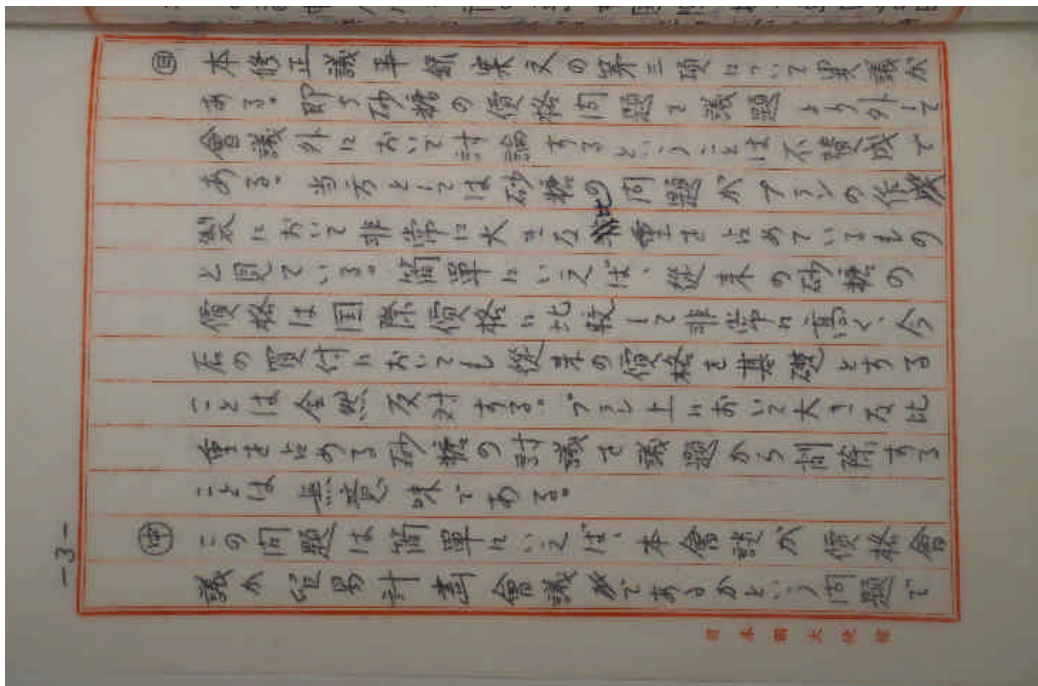 ㊐ 本修正議事録案文の第三項について異議が
ある。即ち砂糖の價格问題を議題より外して
會議外において討論するということは不賛成で
ある。当方としては砂糖の问題がプランの作
製において非常に大きな比重を占めているもの
と見ている。簡單にいえば、従来の砂糖の
價格は国際價格に比較して非常に高く、今
后の買付においても従来の價格を基礎とする
ことは全然反対する。プラン上において大きな比
重を占める砂糖の討議を議題から削除する
ことは無意味である。
㊥ この问題は簡單にいえば、本會談が價格會
議か貿易計畫會議かであるかという问題で
-3-
日本國大使館